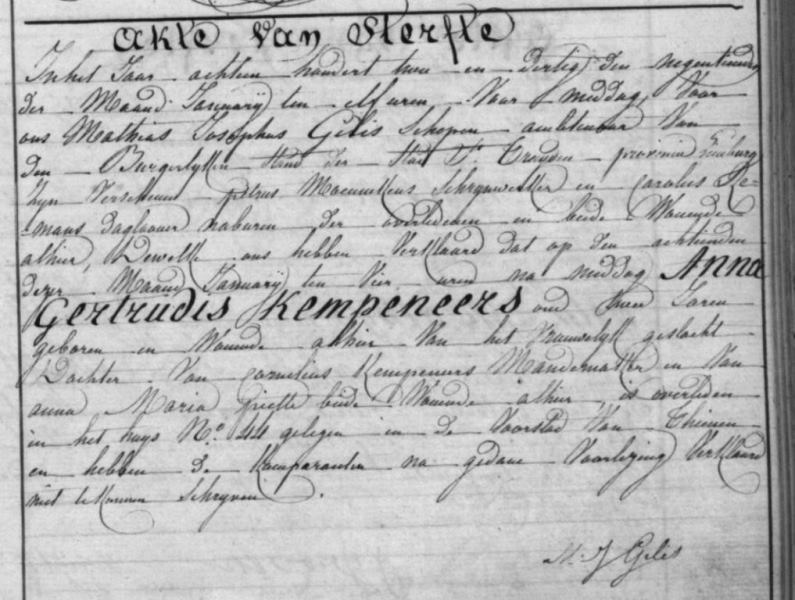 Akte Van Sterfte
In het Jaar achtien hondert twee en dertig den negentienden
der Maand Januarij ten elf uren Voor middag, Voor
ons Mathias Josephus Gelis Schepen ambtenaar Van
den Burgerlyken Stand der Stad St. Truyden provincie Limburg
Zyn Verschenen petrus Schrynwerker en Carolus
daglooner naburen der overledenen en beide Woonende
alhier, Dewelke ons hebben Verklaard dat op den achtienden
dezer Maand Januarij ten Vier uren na middag Anna
Gertrudis Kempeneers oud twee Jaren
geboren en Woonende alhier Van het Vrouwelyk geslacht
Dochter Van Cornelius Kempeneers Mandemaker en Van
anna Maria beide Woonende alhier is overleden
in het huys No. 44 gelegen in de Voorstad Van Thienen
en hebben de Komparanten na gedane Voorlezing Verklaard
niet te Konnen Schryven.
M. J Gelis